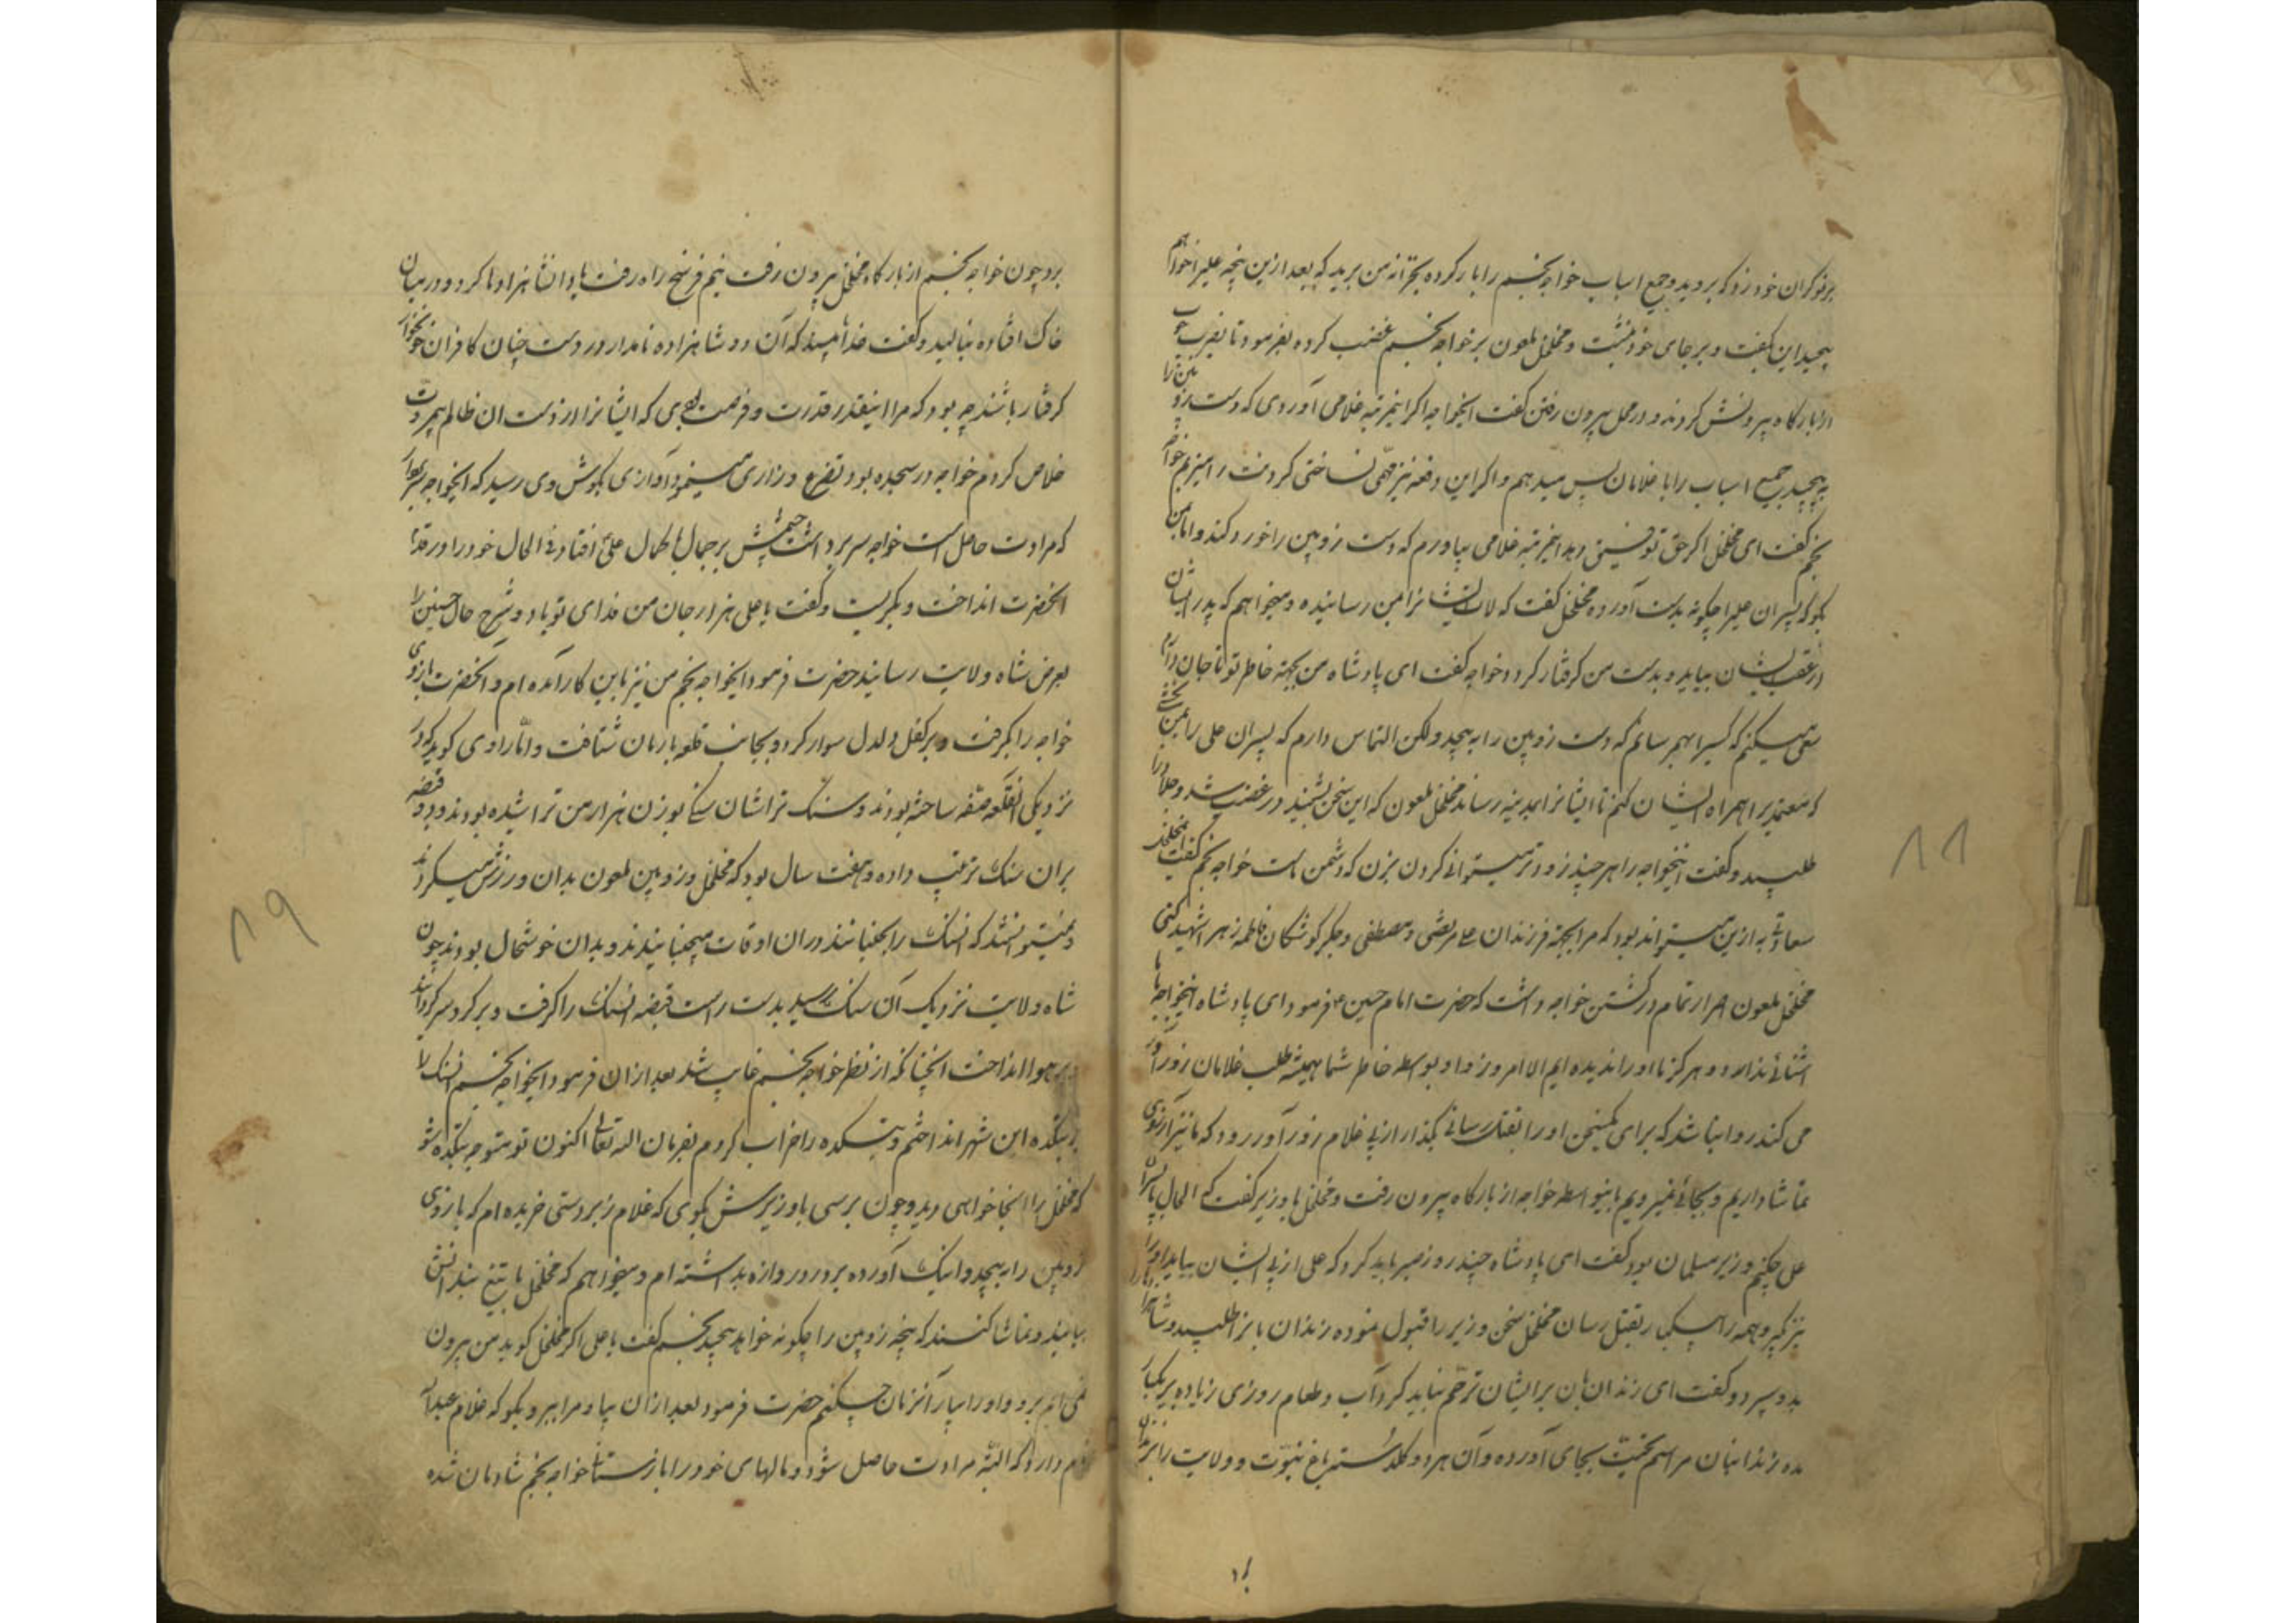 برنوکران خود زد که بروید و جمیع اسباب خواجه نجم را بار کرده بخزانه من برید که بعد ازین پنجه علیرا خواهم
پیچید این بگفت و بر جای خود نشست و مخلخل ملعون بر خواجه نجم غضب کرده بفرمود تا بضرب چوب
از بارگاه بیرونش کردند و در محل بیرون رفتن گفت ایخواجه اگر اینمرتبه غلامی آوردی که دست زوبین را
به پیچید جمیع اسباب را با غلامان پس میدهم و اگر این دفعه نیز مهیّا نساختی گردنت را میزنم خواجه
نجم گفت ای مخلخل اگر حق توفیق دهد اینمرتبه غلامی بیاورم که دست زوبین را خورد کند و اما بمن
بگو که پسران علیرا چگونه بدست آورده مخلخل گفت که لات ایشانرا بمن رسانیده و میخواهم که پدر ایشان
از عقب ایشان بیاید و بدست من گرفتار گردد خواجه گفت ای پادشاه من بجهة خاطر تو تا جان دارم
سعی میکنم که کسیرا بهم رسانم که دست زوبین را به پیچد ولکن التماس دارم که پسران علی را بمن بخشی
که معتمدیرا همراه ایشان کنم تا ایشانرا بمدینه رساند مخلخل ملعون که این سخن بشنید در غضب شد و جلاد را
طلبید و گفت اینخواجه را هر چند زودتر میتوانی گردن بزن که دشمن ماست خواجه نجم گفت ایمخلخل
سعادتی به ازین میتواند بود که مرا بجهة فرزندان علی مرتضی و مصطفی و جگرگوشگان فاطمه زهرا شهید کنی
مخلخل ملعون اصرار تمام در کشتن خواجه داشت که حضرت امام حسین ع فرمود ای پادشاه اینخواجه با ما
اشنائی ندارد و هرگز ما او را ندیده ایم الا امروز و او بواسطه خاطر شما همیشه طلب غلامان زورآور
می کند روا نباشد که برای یکسخن او را بقتل رسانی بگذار از پی غلام زورآور رود که ما نیز آرزوی
تماشا داریم و بجائی نمیرویم باینواسطه خواجه از بارگاه بیرون رفت و مخلخل با وزیر گفت که الحال با پسران
علی چکنم وزیر مسلمان بود گفت ای پادشاه چند روز صبر باید کرد که علی از پی ایشان بیاید او را
نیز گیر و همه را یکبار بقتل رسان مخلخل سخن وزیر را قبول نموده زندان بانرا طلبید و شاهزادها را
بدو سپرد و گفت ای زندان بان بر ایشان ترحّم نباید کرد آب و طعام روزی زیاده بر یکبار
مده زندانبان مراسم محبّت بجای آورده و آن هر دو گلدسته باغ نبوّت و ولایت را بزندان
برد
برد چون خواجه نجم از بارگاه مخلخل بیرون رفت نیم فرسخ راه رفت یاد انشاهزادها کرد و در میان
خاک افتاده بنالید و گفت خدایا مپسند که آن دو شاهزاده نامدار در دست چنان کافران خونخوار
گرفتار باشند چه بود که مرا اینقدر قدرت و فرصت بودی که ایشانرا از دست ان ظالم بیمروّت
خلاص کردم خواجه در سجده بود و تضرع و زاری مینمود آوازی بگوش وی رسید که ایخواجه سر بردار
که مرادت حاصل است خواجه سر برداشت چشمش بر جمال با کمال علی افتاد فی الحال خود را در قدم
انحضرت انداخت و بگریست و گفت یا علی هزار جان من فدای تو باد و شرح حال حسنین را
بعرض شاه ولایت رسانید حضرت فرمود ایخواجه نجم من نیز باین کار آمده ام و انحضرت بازوی
خواجه را بگرفت و بر کفل دلدل سوار کرد و بجانب قلعه بازمان شتافت و امّا راوی گوید که در
نزدیکی انقلعه صفّه ساخته بودند و سنگ تراشان سنگی بوزن هزار من تراشیده بودند و دو قبضه
بران سنگ ترتیب داده و هفت سال بود که مخلخل و زوبین ملعون بدان ورزش میکردند
و نمیتوانستند که انسنگ را بجنبانند دران اوقات میجنبانیدند و بدان خوشحال بودند چون
شاه ولایت نزدیک آن سنگ رسید بدست راست قبضه انسنگ را گرفت و بر گرد سر گردانید
بر هوا انداخت انچنانکه از نظر خواجه نجم غایب شد بعد ازان فرمود ایخواجه نجم انسنگ را
به بتکده این شهر انداختم و بتکده را خراب کردم بفرمان الله تعالی اکنون تو متوجه بتکده شو
که مخلخل را انجا خواهی دید و چون برسی با وزیرش بگوی که غلام زبردستی خریده ام که بازوی
زوبین را به پیچد و اینک آورده بر در دروازه بداشته ام و میخواهم که مخلخل با تبع بتدانش
بیایند و تماشا کنند که پنجه زوبین را چگونه خواهد پیچید نجم گفت یا علی اگر مخلخل گوید من بیرون
نمی آیم برو و او را بیار آنزمان چکنم حضرت فرمود بعد ازان بیا و مرا ببر و بگو که غلام عبدالله
نام دارد که البتّه مرادت حاصل شود و مالهای خود را باز ستان خواجه نجم شادمان شده
۱۹
۱۸